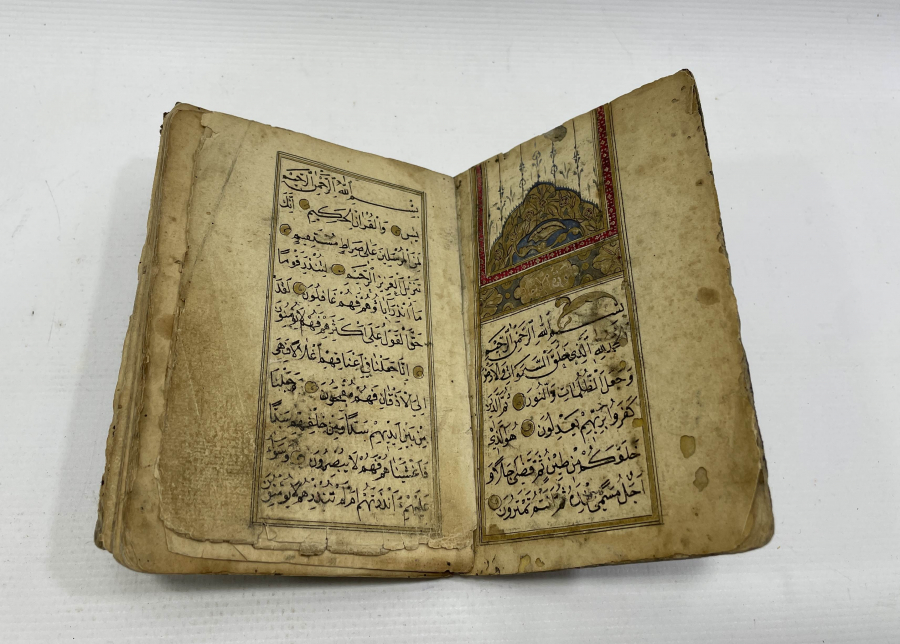 بسم الله الرحمن الرحيم
الحمد لله الذي خلق السموات والارض
وجعل الظلمات والنور ثم الذين
كفروا بربهم يعدلون هو الذي
خلقكم من طين ثم قضى اجلا و
اجل مسمى عنده ثم انتم تمترون
بسم الله الرحمن الرحيم
يس والقران الحكيم انك
لمن المرسلين على صراط مستقيم
تنزيل العزيز الرحيم لتنذر قوما
ما انذر اباؤهم فهم غافلون لقد
حق القول على اكثرهم فهم لا يؤمنون
انا جعلنا في اعناقهم اغلالا فهي
الى الاذقان فهم مقمحون وجعلنا
من بين ايديهم سدا ومن خلفهم سدا
فاغشيناهم فهم لا يبصرون وسواء
عليهم ءانذرتهم ام لم تنذرهم لا يؤمنون